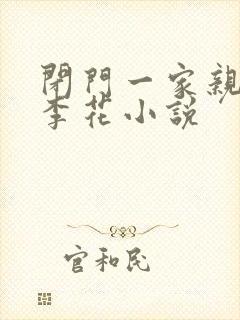 閉門一家親
李花小説
官和民